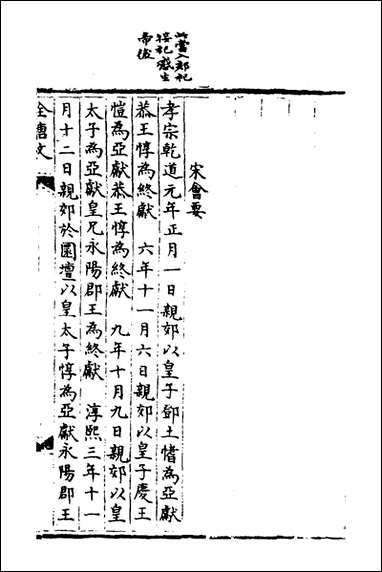 此當入郊祀
祫祀感生
帝後
宋會要
孝宗乾道元年正月一日親郊以皇子鄧王愭為亞獻
恭王惇為終獻　六年十一月六日親郊以皇子慶王
愷為亞獻恭王惇為終獻　九年十月九日親郊以皇
太子為亞獻皇兄永陽郡王為終獻　淳熙三年十一
月十二日親郊於圜壇以皇太子惇為亞獻永陽郡王
全唐文